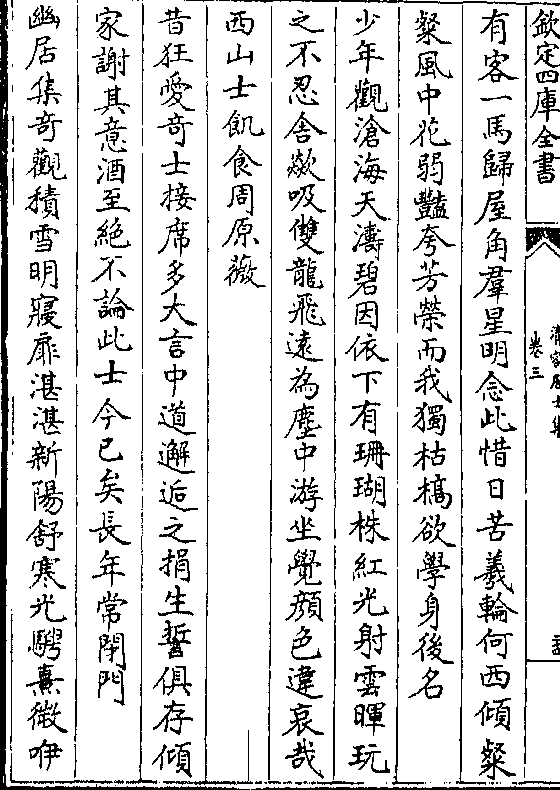 欽定四庫全書
卷三
有客一馬歸屋角羣星明念此惜日苦羲輪何西傾粲
粲風中花弱豔夸芳榮而我獨枯槁欲學身後名
少年觀滄海天濤碧因依下有珊瑚株紅光射雲暉玩
之不忍舍歘吸雙龍飛遠為塵中游坐覺顔色違哀哉
西山士飢食周原薇
昔狂愛奇士接席多大言中道邂逅之捐生誓俱存傾
家謝其意酒至絶不論此士今已矣長年常閉門
幽居集奇觀積雪明寢扉湛湛新陽舒寒光騁熹微咿